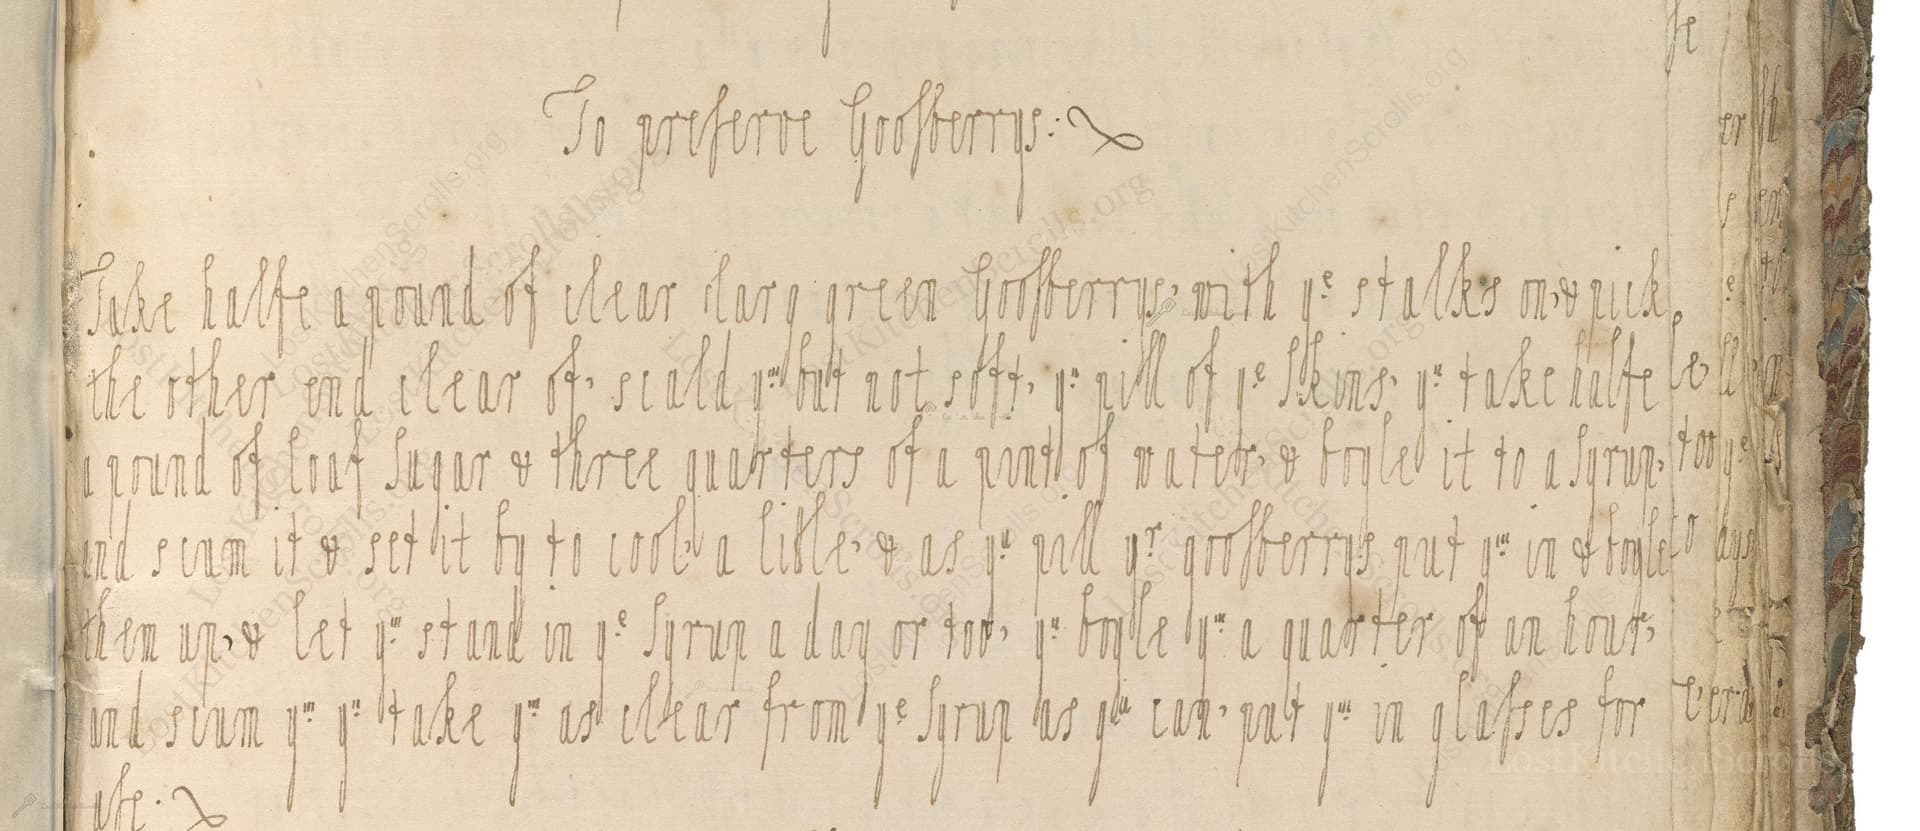 To preserve Goosberrys:
Take halfe a pound of clear larg green Goosberrys, with yᵉ stalks on, & pick
the other end clear of, scald yᵐ but not soft, yⁿ pill of yᵉ skins, yⁿ take halfe
a pound of loaf sugar & three quarters of a pint of water, & boyle it to a syrup,
and scum it & set it by to cool, a litle, & as yᵘ pill yʳ goosberrys put yᵐ in & boyle
them up, & let yᵐ stand in yᵉ syrup a day or too, yⁿ boyle yᵐ a quarter of an hour,
and scum yᵐ yⁿ take yᵐ as clear from yᵉ syrup as yᵘ can, put yᵐ in glasses for
use:
LostKitchenScrolls.org